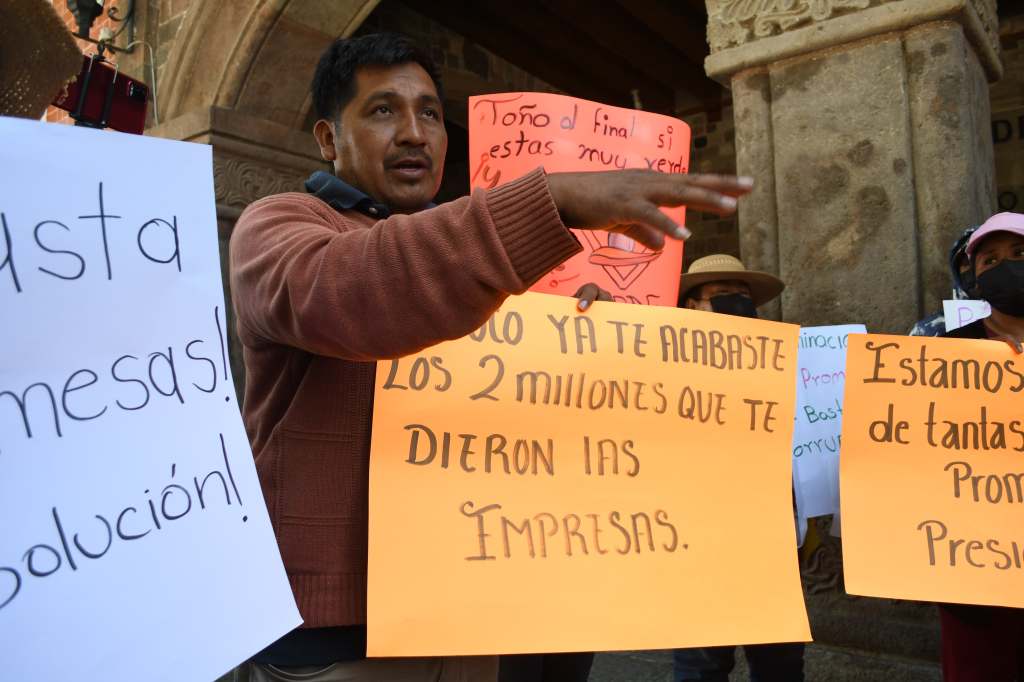 usta
mesas!
solución!
Toño al final si
estas muy verde
¡y
YA TE ACABASTE
LOS 2 MILLONES QUE TE
DIERON LAS
EMPRESAS.
Prom
Bast
Estamos
de tantas
Prom
Presi